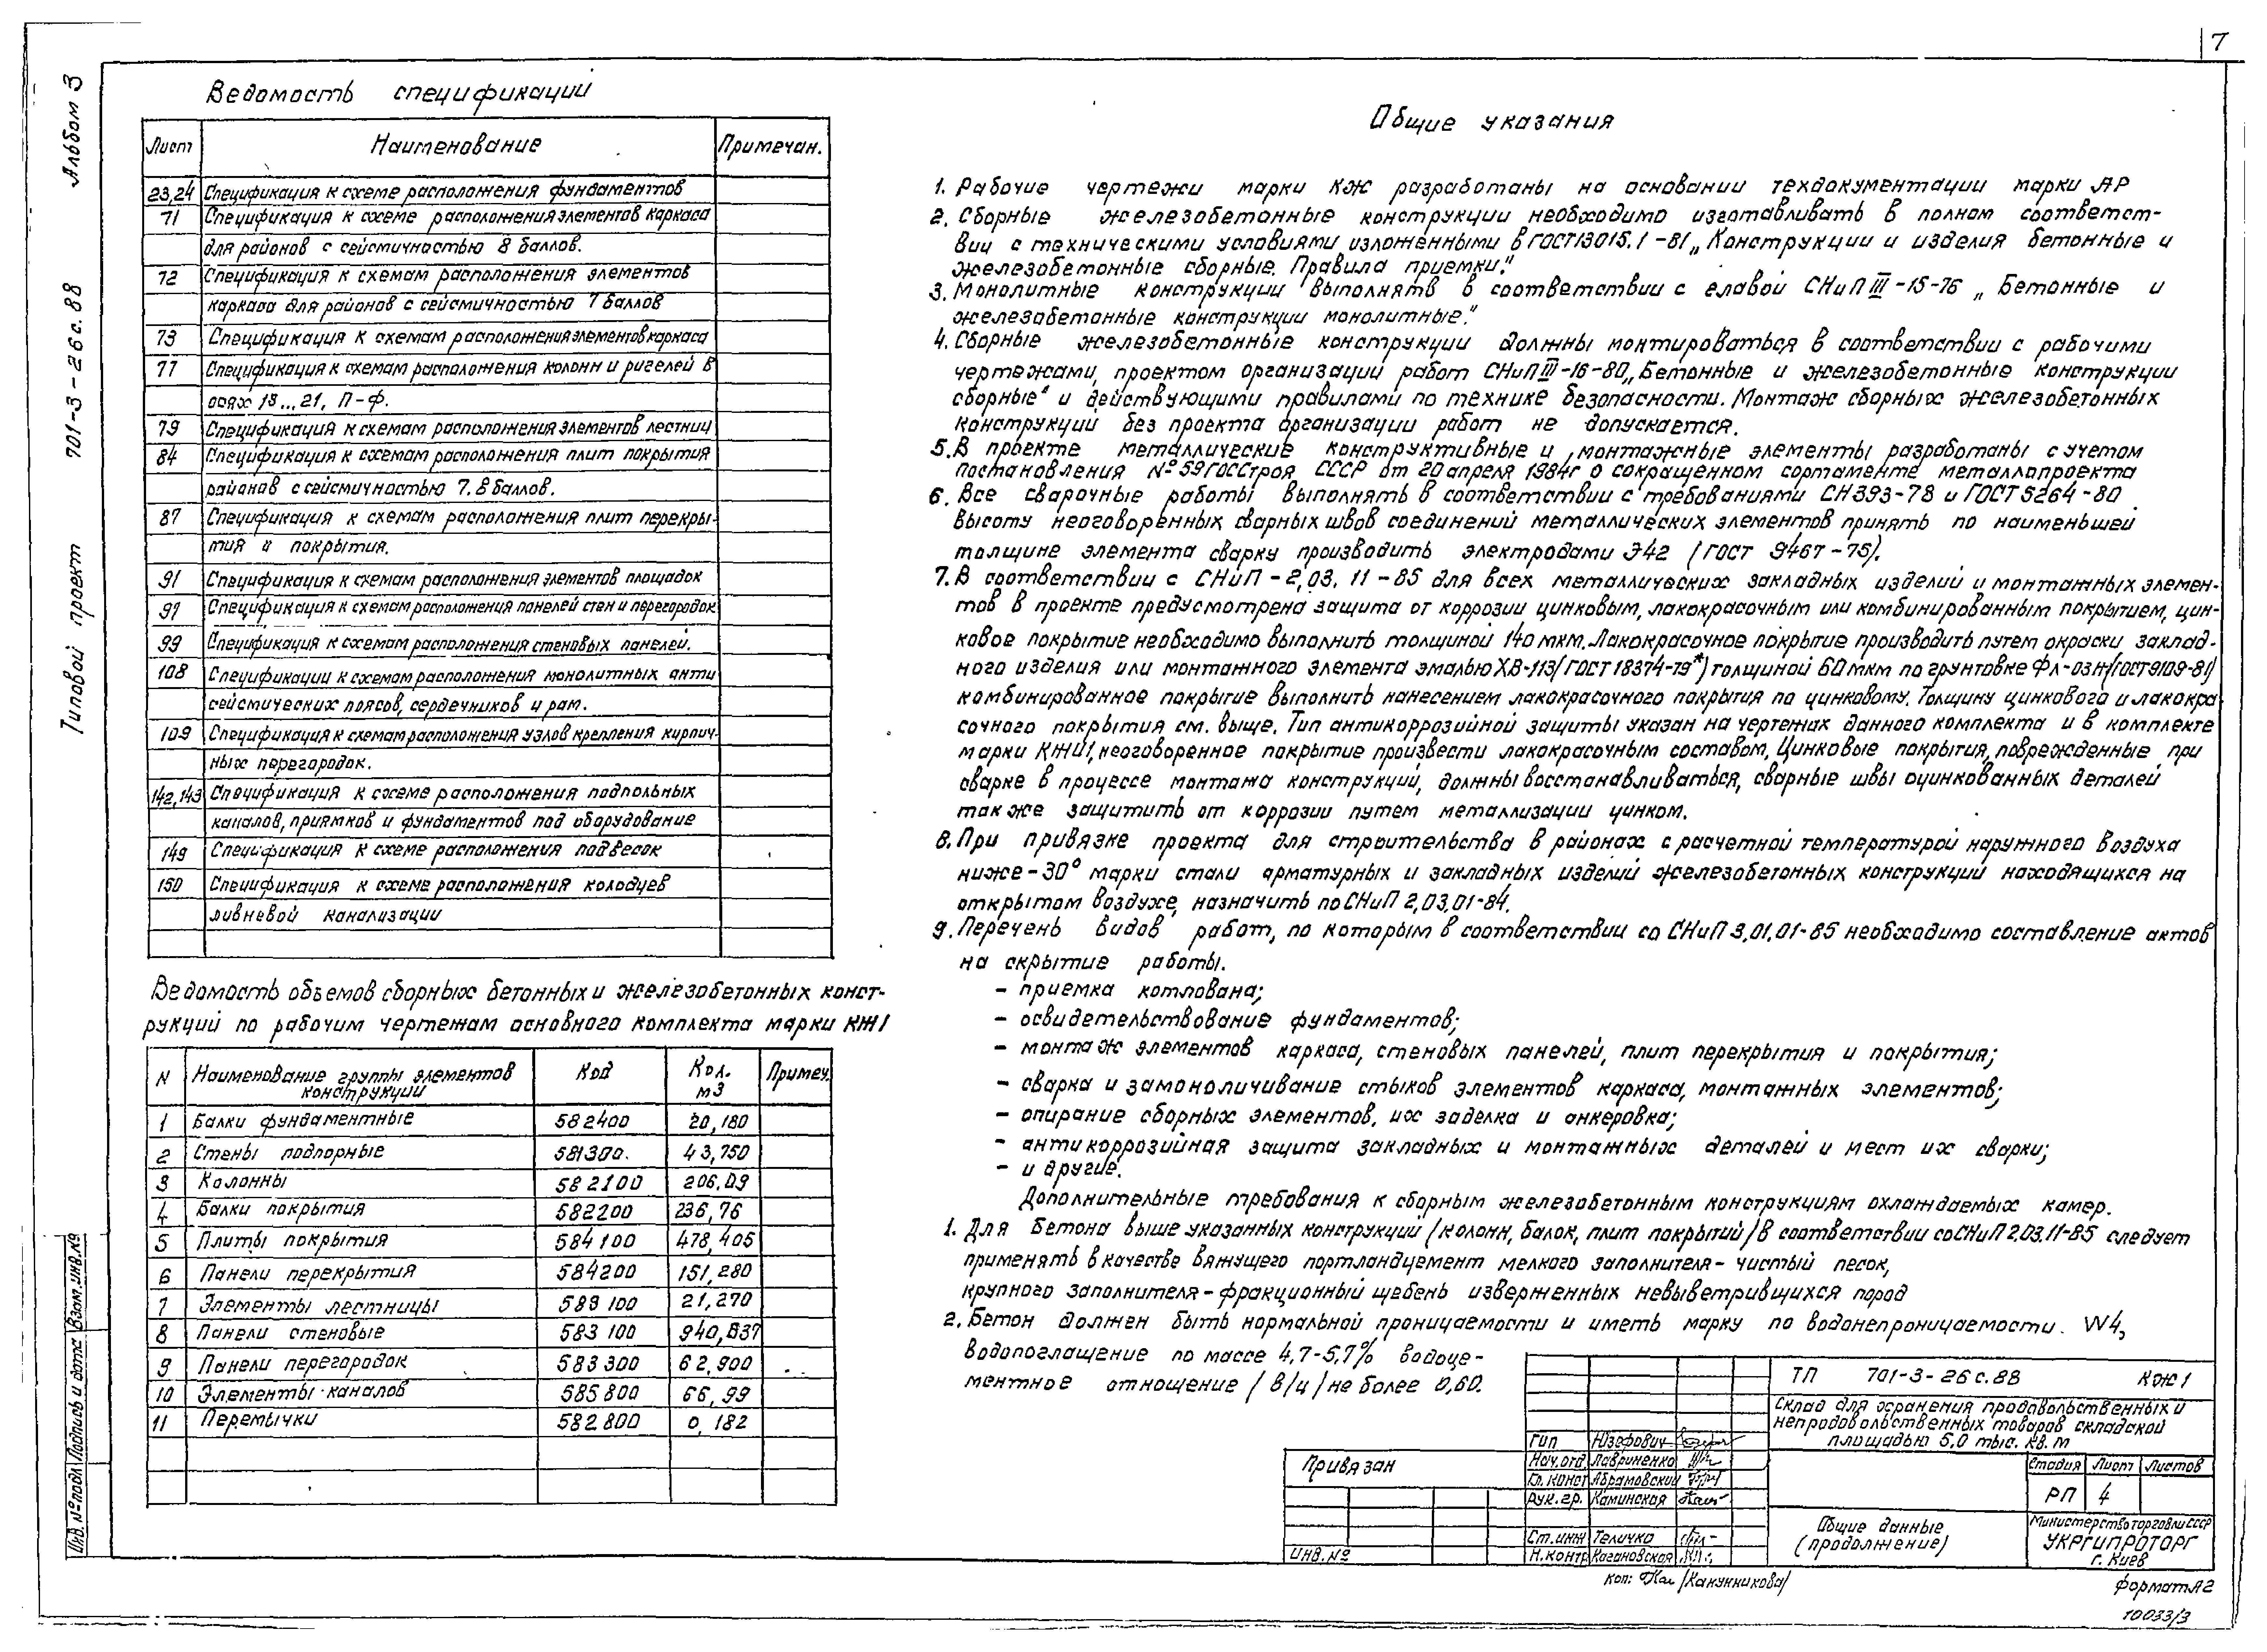 7
Альбом 3
701-3-26с.88
Типовой проект
Ведомость спецификаций
Лист Наименование Примечан.
23,24 Спецификация к схеме расположения фундаментов
71 Спецификация к схеме расположения элементов каркаса
для районов с сейсмичностью 8 баллов.
72 Спецификация к схемам расположения элементов
каркаса для районов с сейсмичностью 7 баллов
73 Спецификация к схемам расположения элементов каркаса
77 Спецификация к схемам расположения колонн и ригелей в
осях 18...21, П-Ф.
79 Спецификация к схемам расположения элементов лестниц
84 Спецификация к схемам расположения плит покрытия
районов с сейсмичностью 7,8 баллов.
87 Спецификация к схемам расположения плит перекры-
тия и покрытия.
91 Спецификация к схемам расположения элементов площадок
97 Спецификация к схемам расположения панелей стен и перегородок
99 Спецификация к схемам расположения стеновых панелей.
108 Спецификации к схемам расположения монолитных анти
сейсмических поясов, сердечников и рам.
109 Спецификация к схемам расположения узлов крепления кирпич-
ных перегородок.
142,143 Спецификация к схеме расположения подпольных
каналов, приямков и фундаментов под оборудование
149 Спецификация к схеме расположения подвесок
150 Спецификация к схеме расположения колодцев
ливневой канализации
Ведомость объемов сборных бетонных и железобетонных конст-
рукций по рабочим чертежам основного комплекта марки КЖ1
N Наименование группы элементов конструкции Код Кол. м3 Примеч.
1 Балки фундаментные 582400 20,180
2 Стены подпорные 581300. 43,750
3 Колонны 582100 206,09
4 Балки покрытия 582200 236,76
5 Плиты покрытия 584100 478,405
6 Панели перекрытия 584200 151,280
7 Элементы лестницы 589 100 21,270
8 Панели стеновые 583 100 940,837
9 Панели перегородок 583300 62,900
10 Элементы каналов 585800 66,99
11 Перемычки 582800 0,182
Общие указания
1. Рабочие чертежи марки КЖ разработаны на основании техдокументации марки АР
2. Сборные железобетонные конструкции необходимо изготавливать в полном соответст-
вии с техническими условиями изложенными в ГОСТ13015.1-81 „Конструкции и изделия бетонные и
железобетонные сборные. Правила приемки."
3. Монолитные конструкции выполнять в соответствии с главой СНиП III-15-76 „Бетонные и
железобетонные конструкции монолитные."
4. Сборные железобетонные конструкции должны монтироваться в соответствии с рабочими
чертежами, проектом организации работ СНиП III-16-80 „Бетонные и железобетонные конструкции
сборные" и действующими правилами по технике безопасности. Монтаж сборных железобетонных
конструкций без проекта организации работ не допускается.
5. В проекте металлические конструктивные и монтажные элементы разработаны с учетом
постановления №59 ГОССтроя СССР от 20 апреля 1984г о сокращенном сортаменте металлопроекта
6. Все сварочные работы выполнять в соответствии с требованиями СН393-78 и ГОСТ 5264-80
Высоту неоговоренных сварных швов соединений металлических элементов принять по наименьшей
толщине элемента сварку производить электродами Э42 (ГОСТ 9467-75).
7. В соответствии с СНиП-2,03.11-85 для всех металлических закладных изделий и монтажных элемен-
тов в проекте предусмотрена защита от коррозии цинковым, лакокрасочным или комбинированным покрытием, цин-
ковое покрытие необходимо выполнить толщиной 140 мкм. Лакокрасочное покрытие производить путем окраски заклад-
ного изделия или монтажного элемента эмалью ХВ-113 (ГОСТ 18374-79*) толщиной 60 мкм по грунтовке ФЛ-03Н (ГОСТ9109-81)
комбинированное покрытие выполнить нанесением лакокрасочного покрытия по цинковому. Толщину цинкового и лакокра
сочного покрытия см. выше. Тип антикоррозийной защиты указан на чертежах данного комплекта и в комплекте
марки КЖИ1, неоговоренное покрытие произвести лакокрасочным составом. Цинковые покрытия, поврежденные при
сварке в процессе монтажа конструкций, должны восстанавливаться, сварные швы оцинкованных деталей
также защитить от коррозии путем металлизации цинком.
8. При привязке проекта для строительства в районах с расчетной температурой наружного воздуха
ниже -30° марки стали арматурных и закладных изделий железобетонных конструкций находящихся на
открытом воздухе, назначить по СНиП 2,03,01-84.
9. Перечень видов работ, по которым в соответствии со СНиП 3,01.01-85 необходимо составление актов
на скрытие работы.
- приемка котлована;
- освидетельствование фундаментов;
- монтаж элементов каркаса, стеновых панелей, плит перекрытия и покрытия;
- сварка и замоноличивание стыков элементов каркаса, монтажных элементов;
- опирание сборных элементов, их заделка и анкеровка;
- антикоррозийная защита закладных и монтажных деталей и мест их сварки;
- и другие.
Дополнительные требования к сборным железобетонным конструкциям охлаждаемых камер.
1. Для бетона выше указанных конструкций (колонн, балок, плит покрытий) в соответствии со СНиП 2.03.11-85 следует
применять в качестве вяжущего портландцемент мелкого заполнителя - чистый песок,
крупного заполнителя - фракционный щебень изверженных невыветрившихся пород
2. Бетон должен быть нормальной проницаемости и иметь марку по водонепроницаемости. W4,
водопоглащение по массе 4,7-5,7% водоце-
ментное отношение (в/ц) не более 0,60.
ТП 701-3-26с.88 КЖ1
Склад для хранения продовольственных и
непродовольственных товаров складской
площадью 5,0 тыс. кв.м
ГИП Юзефович
Нач.отд. Лавриненко
Гл. конст Абрамовский
Рук. гр. Каминская
Ст.инж Теличко
Н.контр Кагановская
Привязан
Инв.№
Стадия Лист Листов
РП 4
Общие данные
(продолжение)
Министерство торговли СССР
УКРГИПРОТОРГ
г. Киев
коп: (Канунникова)
Формат А2
10033/3
Взам.инв.№
Подпись и дата
Инв.№подл